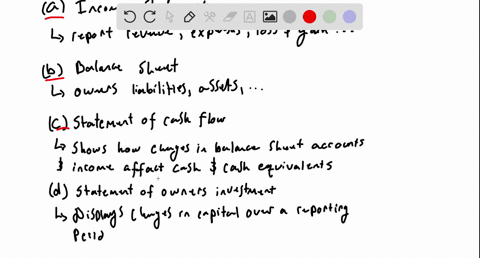 (a) Incom
↳ report revenue, expenses, loss & gain ...
(b) Balance Sheet
↳ owners liabilities, assets, ...
(c) Statement of cash flow
↳ Shows how changes in balance sheet accounts
& income affect cash & cash equivalents
(d) Statement of owners investment
↳ Displays changes in capital over a reporting